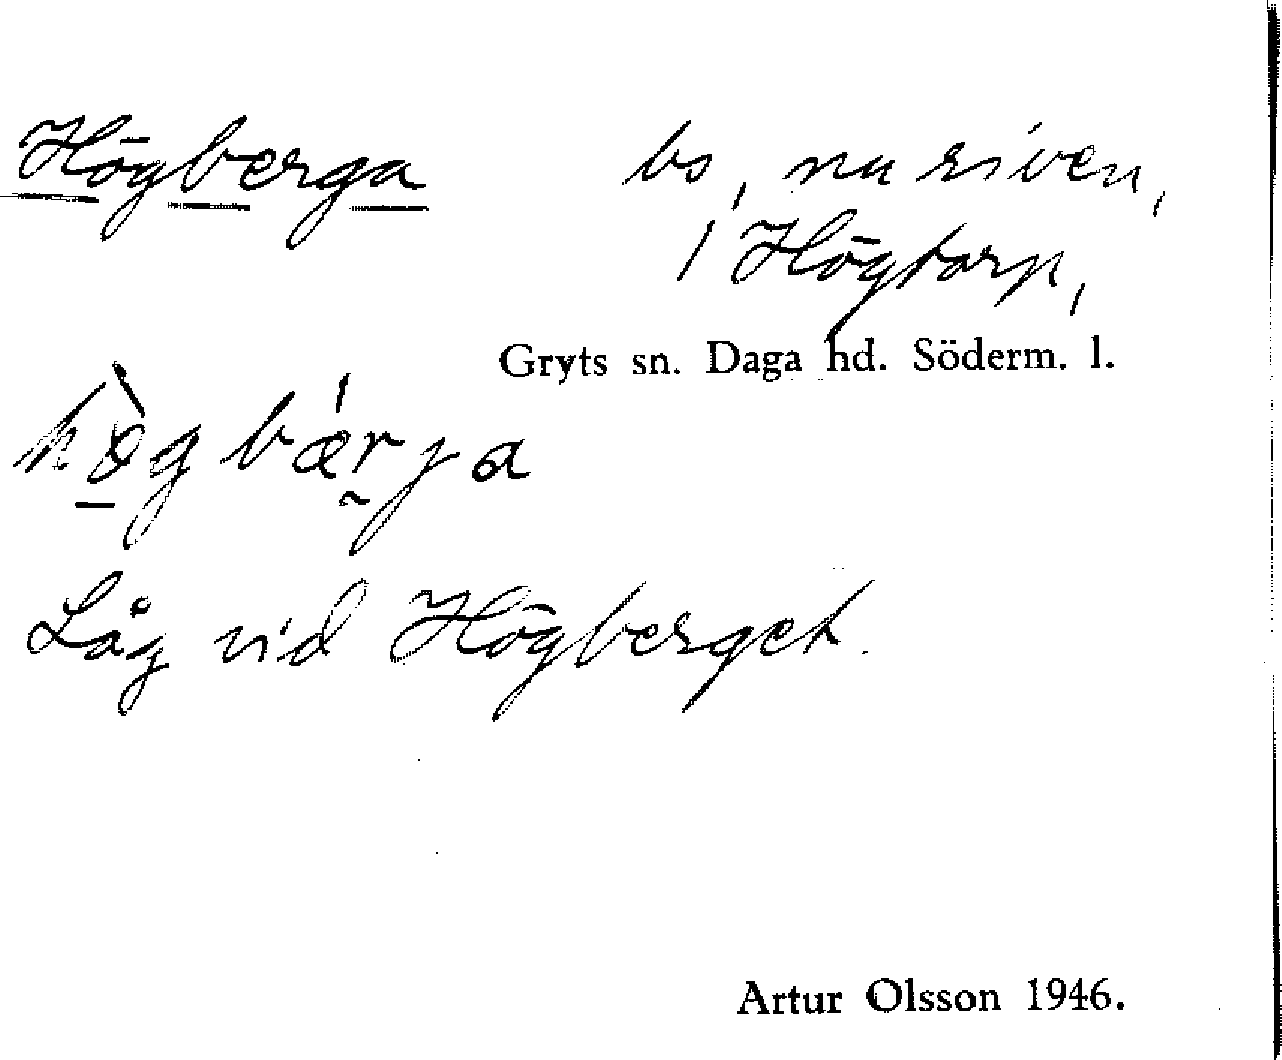 Högberga bs, nu riven,
/ Högtorp,
Gryts sn. Daga hd. Söderm. l.
hø̀gbǽrja
Låg vid Högberget.
Artur Olsson 1946.